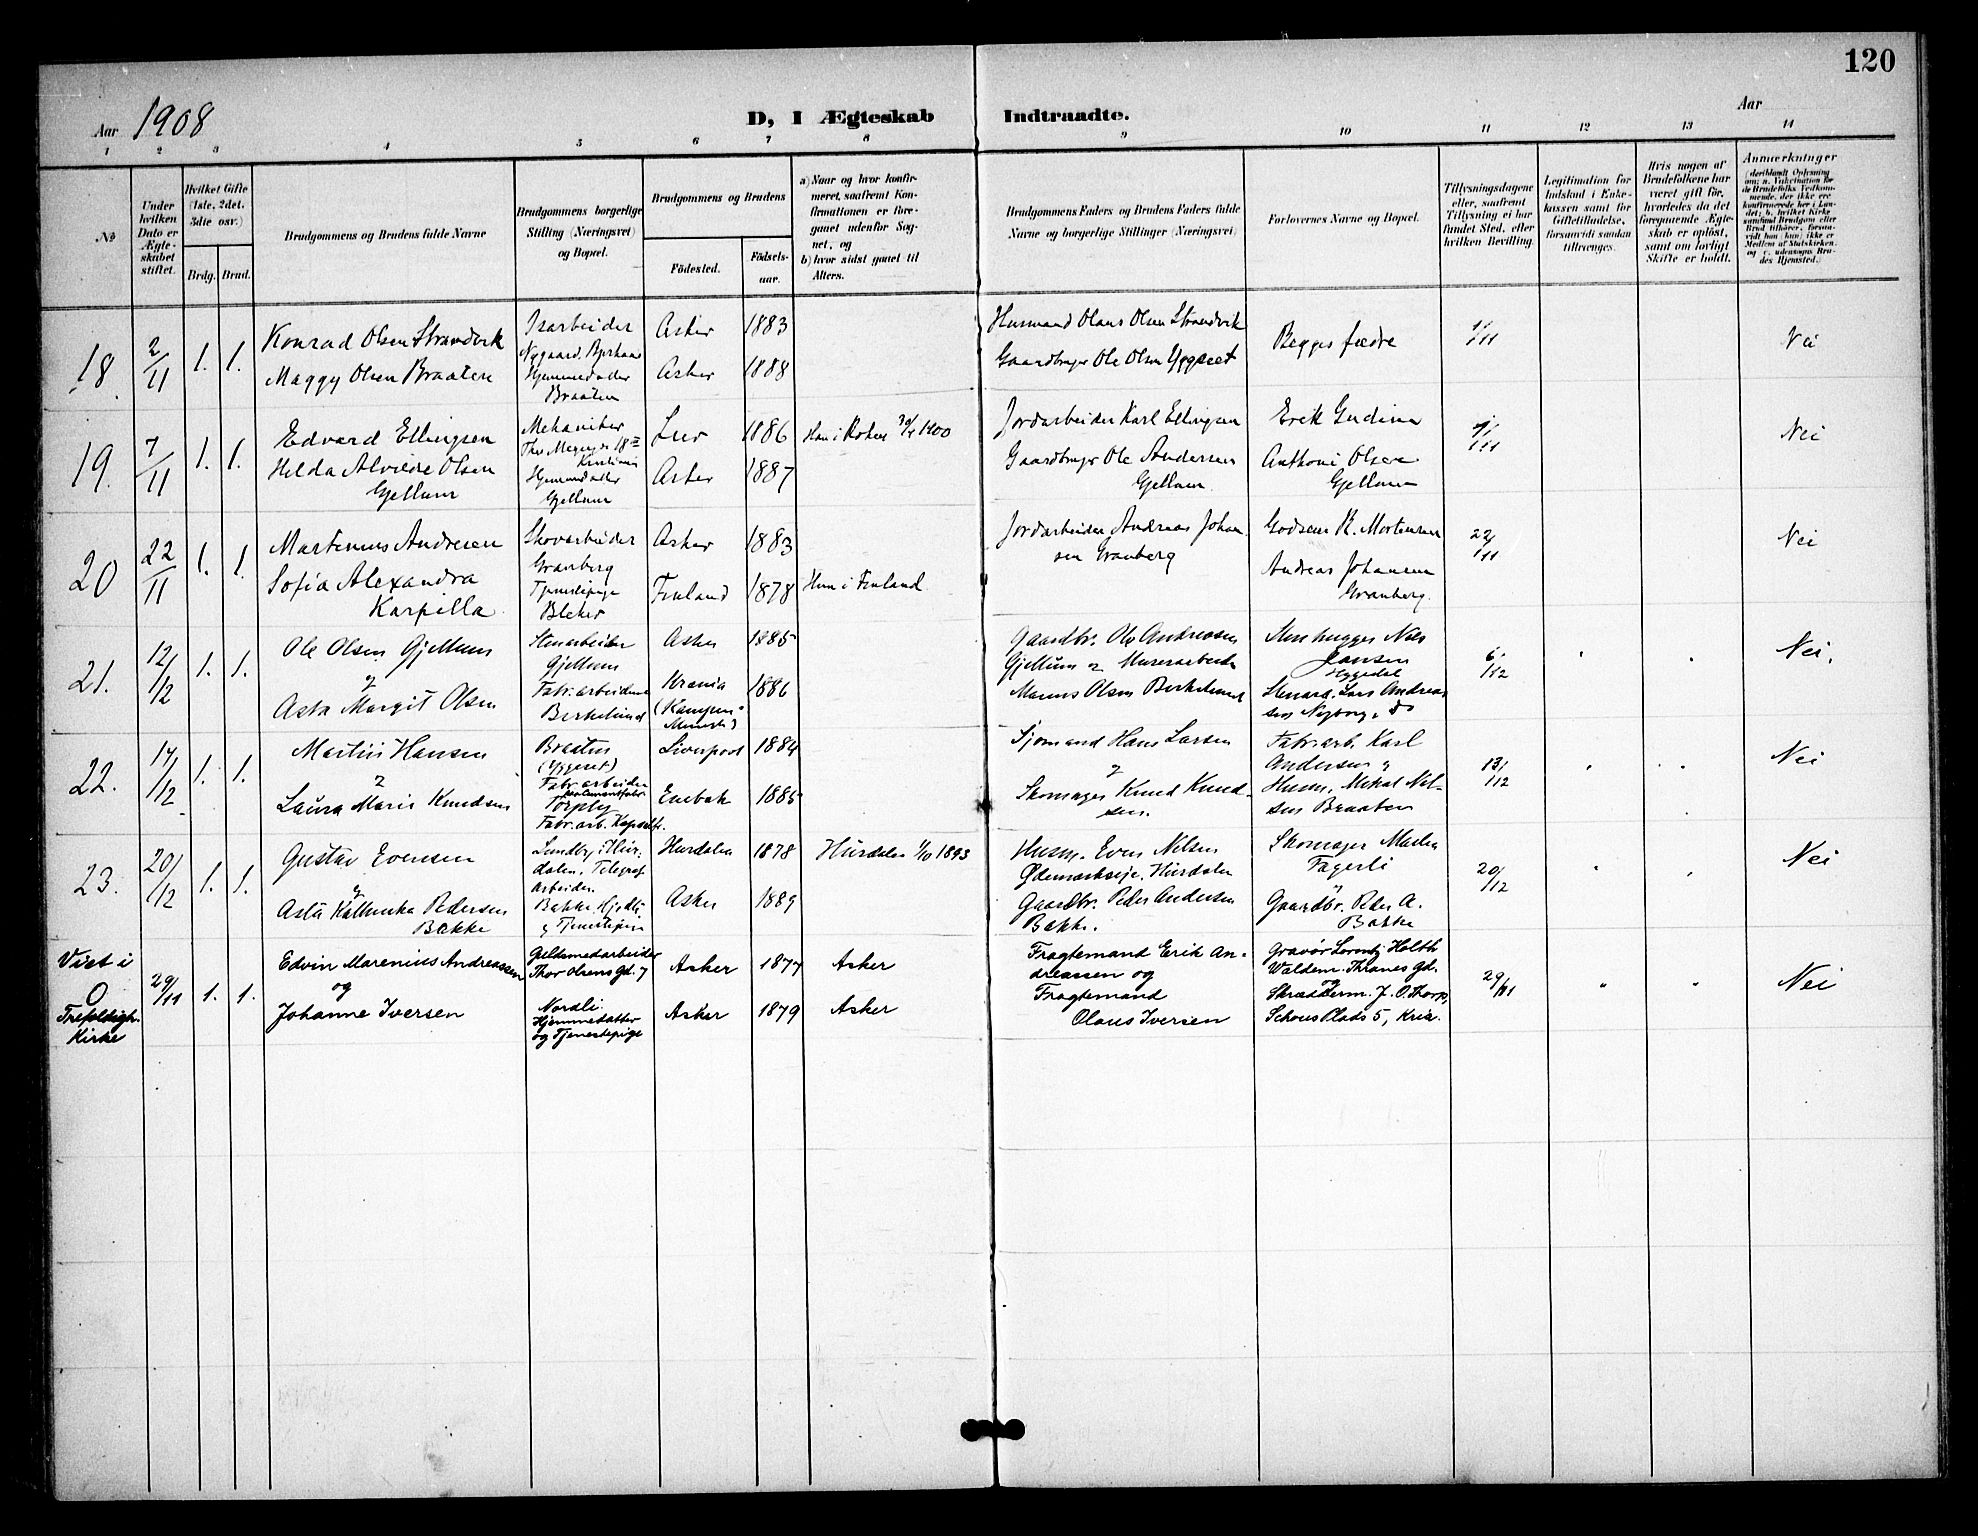 120
Aar 1908
D, I Ægteskab Indtraadte.
Aar
1 2 3 4 5 6 7 8 9 10 11 12 13 14
No
Under hvilken Dato er Ægteskabet stiftet.
Hvilket Gifte (1ste, 2det, 3die osv.)
Brdg. Brud.
Brudgommens og Brudens fulde Navne
Brudgommens borgerlige Stilling (Næringsvei) og Bopæl.
Brudgommens og Brudens
Födested.
Födsels-aar.
a) Naar og hvor konfirmeret, saafremt Konfirmationen er foregaaet udenfor Sognet, og
b) hvor sidst gaaet til Alters.
Brudgommens Faders og Brudens Faders fulde Navne og borgerlige Stillinger (Næringsvei)
Forlovernes Navne og Bopæl.
Tillysningsdagene eller, saafremt Tillysning ei har fundet Sted, efter hvilken Bevilling.
Legitimation for Indskud i Enkekassen samt for Giftetilladelse, forsaavidt saadan tiltrænges.
Hvis nogen af Brudefolkene har været gift för, hvorledes da det foregaaende Ægteskab er oplöst, samt om lovligt Skifte er holdt.
Anmerkninger
18. 2/11 1. 1.
Konrad Olsen Strandvik
Maggy Olsen Braaten
Isarbeider
Nygaard,
Hjemmedatter
Braaten
Asker 1883
Asker 1888
Husmand Olaus Olsen Strandvik
Gaardbruger Ole Olsen Yggeset
Begges fædre
1/11
Nei
19. 7/11 1. 1.
Edvard Ellingsen
Helda Alvilde Olsen
Gjellum
Mekaniker
Thv. Meyersgd 18
Kristiania
Hjemmedatter
Gjellum
Lier 1886
Asker 1887
Han i Røken 30/9 1900
Jordarbeider Karl Ellingsen
Gaardbruger Ole Andersen
Gjellum.
Erik Gudim
Anthoni Olsen
Gjellum
1/11
Nei
20 22/11 1. 1.
Martinius Andresen
Sofia Alexandra
Karpilla
Skovarbeider
Granberg
Tjenestepige
Bleker
Asker 1883
Finland 1878
Hun i Finland
Jordarbeider Andreas Johansen
Granberg
Godseier R. Mortensen
Andreas Johansen
Granberg.
22/11
Nei
21. 12/12 1. 1.
Ole Olsen Gjellum
&
Asta Margit Olsen
Stenarbeider
Gjellum
Fabr.arbeiderske
Birkelund
Asker 1885
Krania 1886
(Kampens
Menigh.)
Gaardbr. Ole Andreasen
Gjellum & Murerarbeider
Olsen Birkelund
Stenhugger Nils
Jansen
Hyggedal
Stenarb. Lars Andreassen
Nyborg, do
6/12
Nei.
22. 17/12 1. 1.
Martin Hansen
&
Laura Marie Knudsen
Braaten
(Yggeset)
Fabr.arbeider
Cementfabr.
Torpby
Fabr.arb. Kapselfr.
Liverpool 1884
Enebak 1885
Sjomand Hans Larsen
&
Skomager Knud Knudsen.
Fabr.arb. Karl
Andersen &
Husm. Mikal Nilsen
Braaten
13/12
Nei
23. 20/12 1. 1.
Gustav Evensen
&
Asta Kathinka Pedersen
Bakke
Lundby i Hurdalen,
Telegrafarbeider.
Bakke, Hjdtr.
& Tjenestepige
Hurdalen 1878
Asker 1889
Hurdalen 1/10 1893
Husm. Even Nilsen
Ødemarkseje, Hurdalen
Gaardbr. Peder Andersen
Bakke.
Skomager Martin
Fagerli
Gaardbr. Peder A.
Bakke
20/12
Nei
Viet i
Trefoldigh.
Kirke
29/11 1. 1.
Edvin Marenius Andreassen
og
Johanne Iversen
Guldsmedarbeider
Thor Olsens Gd. 7
Nordli
Hjemmedatter
og Tjenestepige
Asker 1877 Asker
Asker 1879 Asker
Fragtemand Erik Andreassen
og
Fragtemand
Olaus Iversen
Gravør Lorentz Holth
Waldem. Thranes gd.
og
Skræderm. J. O. Thorp,
Schous Plads 5, Kria.
29/11
Nei